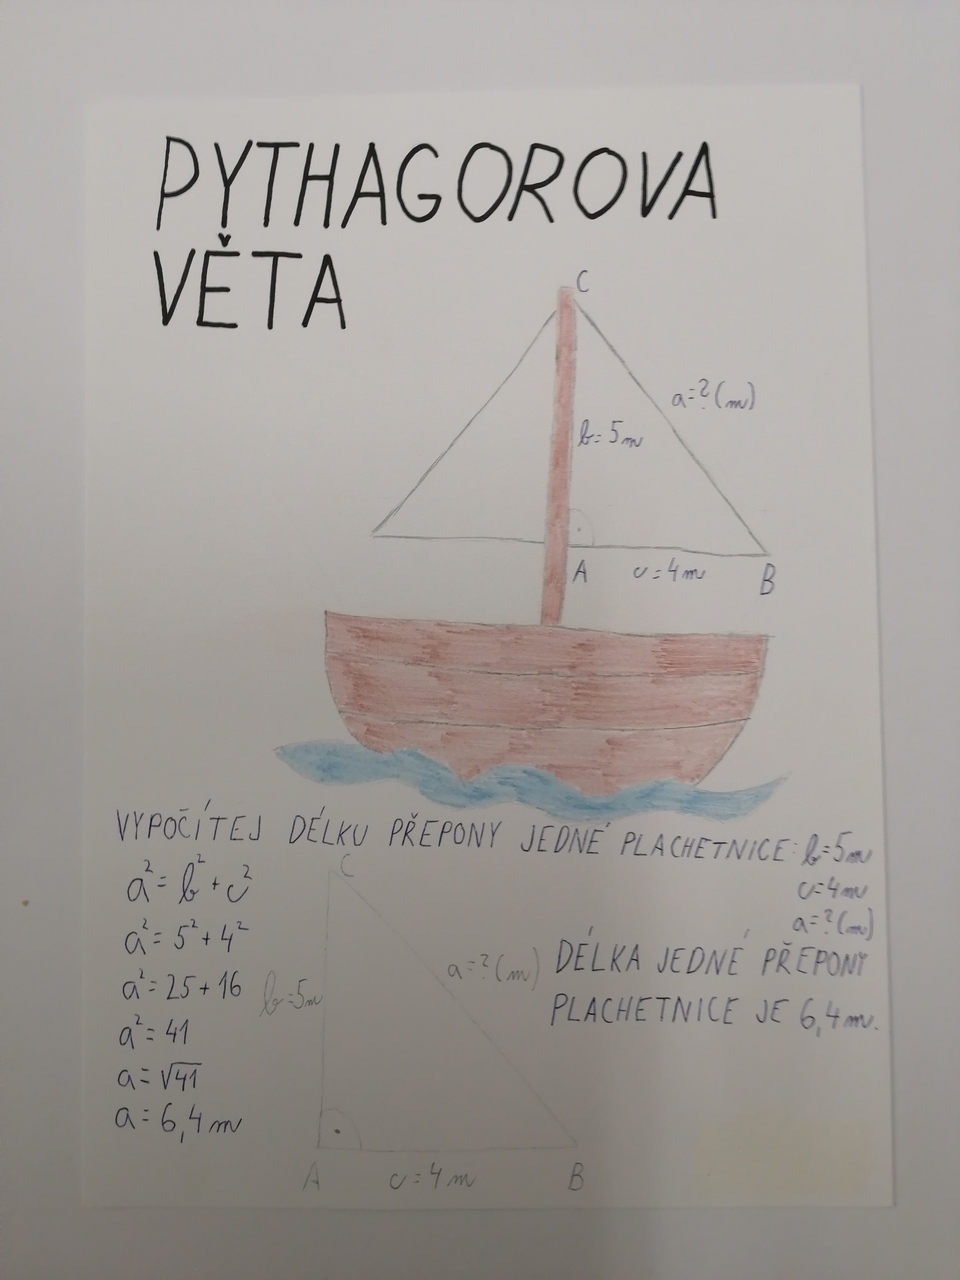 PYTHAGOROVA
VĚTA
C
a=?(m)
b=5m
A
c=4m
B
VYPOČÍTEJ DÉLKU PŘEPONY JEDNÉ PLACHETNICE: b=5m
c=4m
a=?(m)
a²=b²+c²
a²=5²+4²
a²=25+16
a²=41
a=√41
a=6,4m
C
b=5m
a=?(m)
A
c=4m
B
DÉLKA JEDNÉ PŘEPONY
PLACHETNICE JE 6,4m.